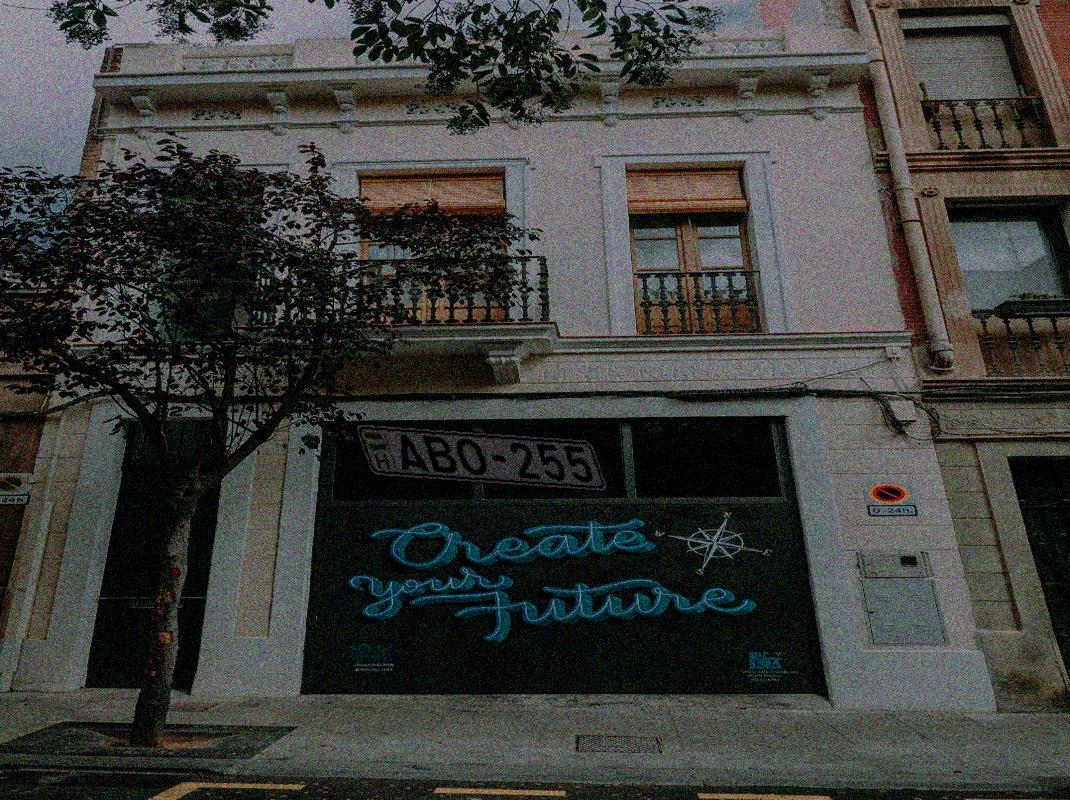 ABO-255
Create
your
Future
0-24h.
24h